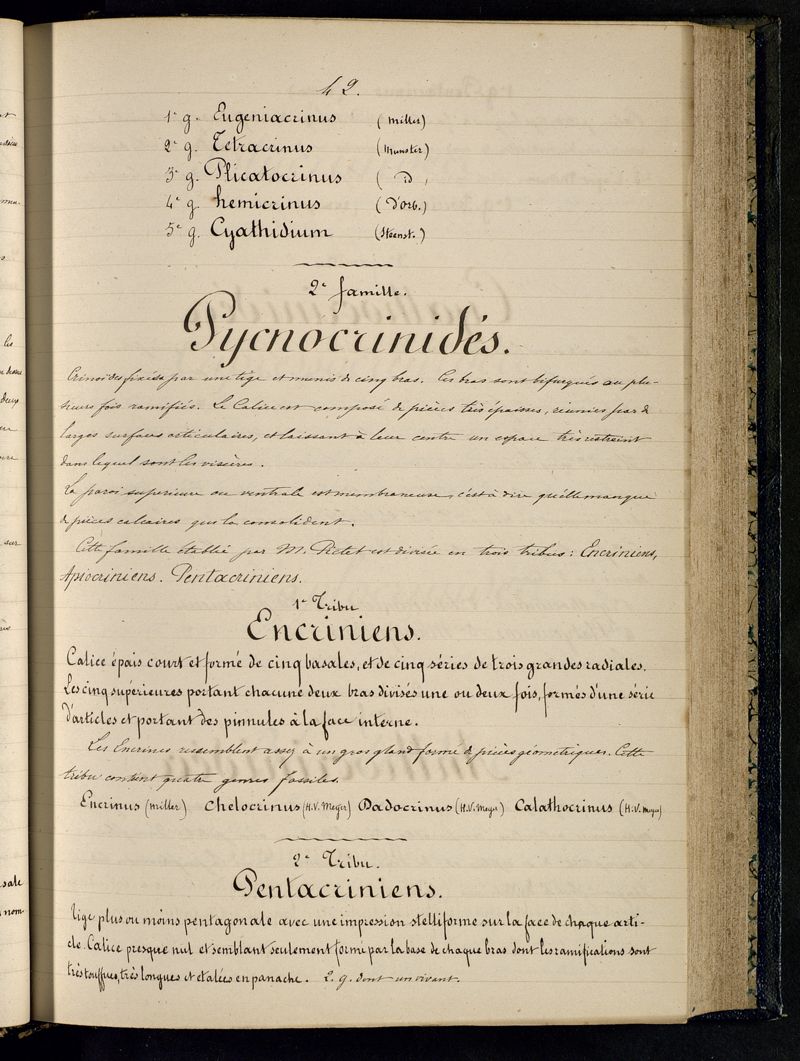 42.
1er g. Eugeniacrinus (Miller)
2e g. Tetracrinus (Munster)
3e g. Plicatocrinus ( id )
4e g. hemicrinus (D'orb.)
5e g. Cyathidium (Steenst.)
2e famille.
Pycnocrinidés.
Crinoïdes fixées par une tige et munis de cinq bras. Ces bras sont bifurqués au plu-
sieurs fois ramifiés. Le Calice est composé de pièces très épaisses, réunies par de
larges surfaces articulaires, et laissant à leur centre un espace très restreint
dans lequel sont les viscères.
La paroi supérieure ou ventrale est membraneuse, c'est à dire qu'elle manque
de pièces calcaires qui la consolident.
Cette famille établie par M. Pictet est divisée en trois tribus : Encriniens,
Apiocriniens. Pentacriniens.
1e Tribu
Encriniens.
Calice épais court et formé de cinq basales, et de cinq séries de trois grandes radiales.
Les cinq supérieures portant chacune deux bras divisés une ou deux fois, formés d'une série
d'articles et portant des pinnules à la face interne.
Les Encrines ressemblent assez à un gros gland formé de pièces géométriques. Cette
tribu contient quatre genres fossiles.
Encrinus (Miller) Chelocrinus (H.V. Meyer) Dadocrinus (H.V. Meyer) Calathocrinus (H.V. Meyer)
2e Tribu.
Pentacriniens.
Tige plus ou moins pentagonale avec une impression stelliforme sur la face de chaque arti-
cle. Calice presque nul et semblant seulement formé par la base de chaque bras dont les ramifications sont
très touffues, très longues et étalées en panache. 2. g. dont un vivant.